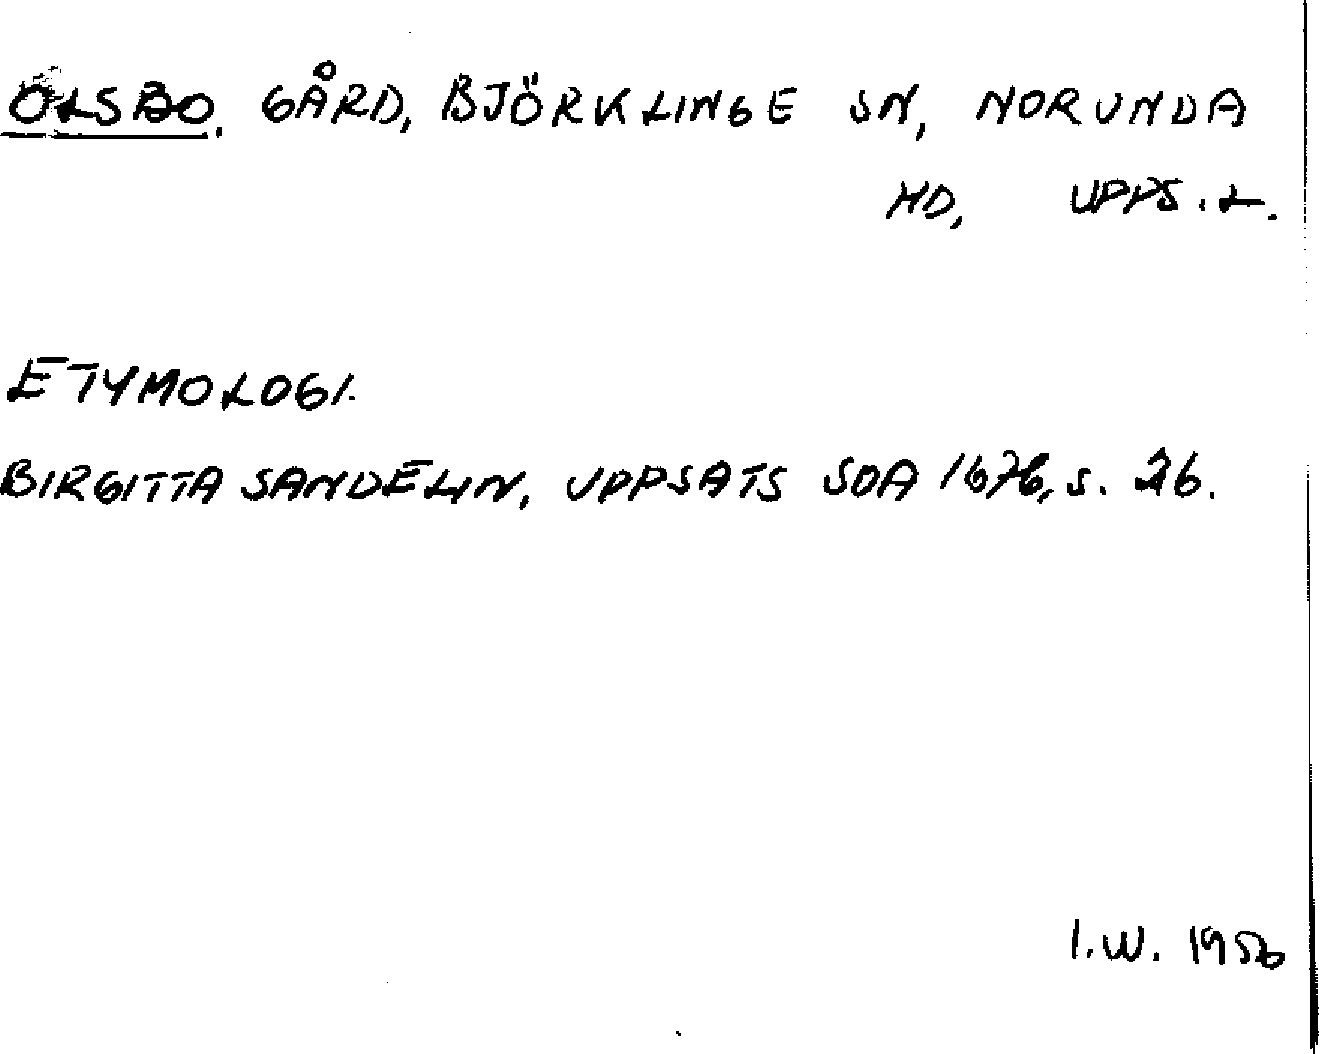 OLSBO, GÅRD, BJÖRKLINGE SN, NORUNDA
HD, UPPS. L.
ETYMOLOGI.
BIRGITTA SANDELIN, UPPSATS SOA 1676, S. 26.
I.W. 1956